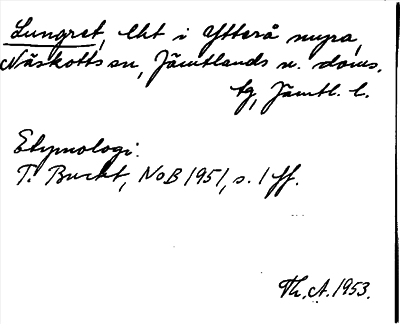 Lungret, lht i Ytterå myra,
Näskotts sn, Jämtlands n. doms.
tg, Jämtl. l.
Etymologi:
T. Bucht, NoB 1951, s. 1 ff.
Th. A. 1953.